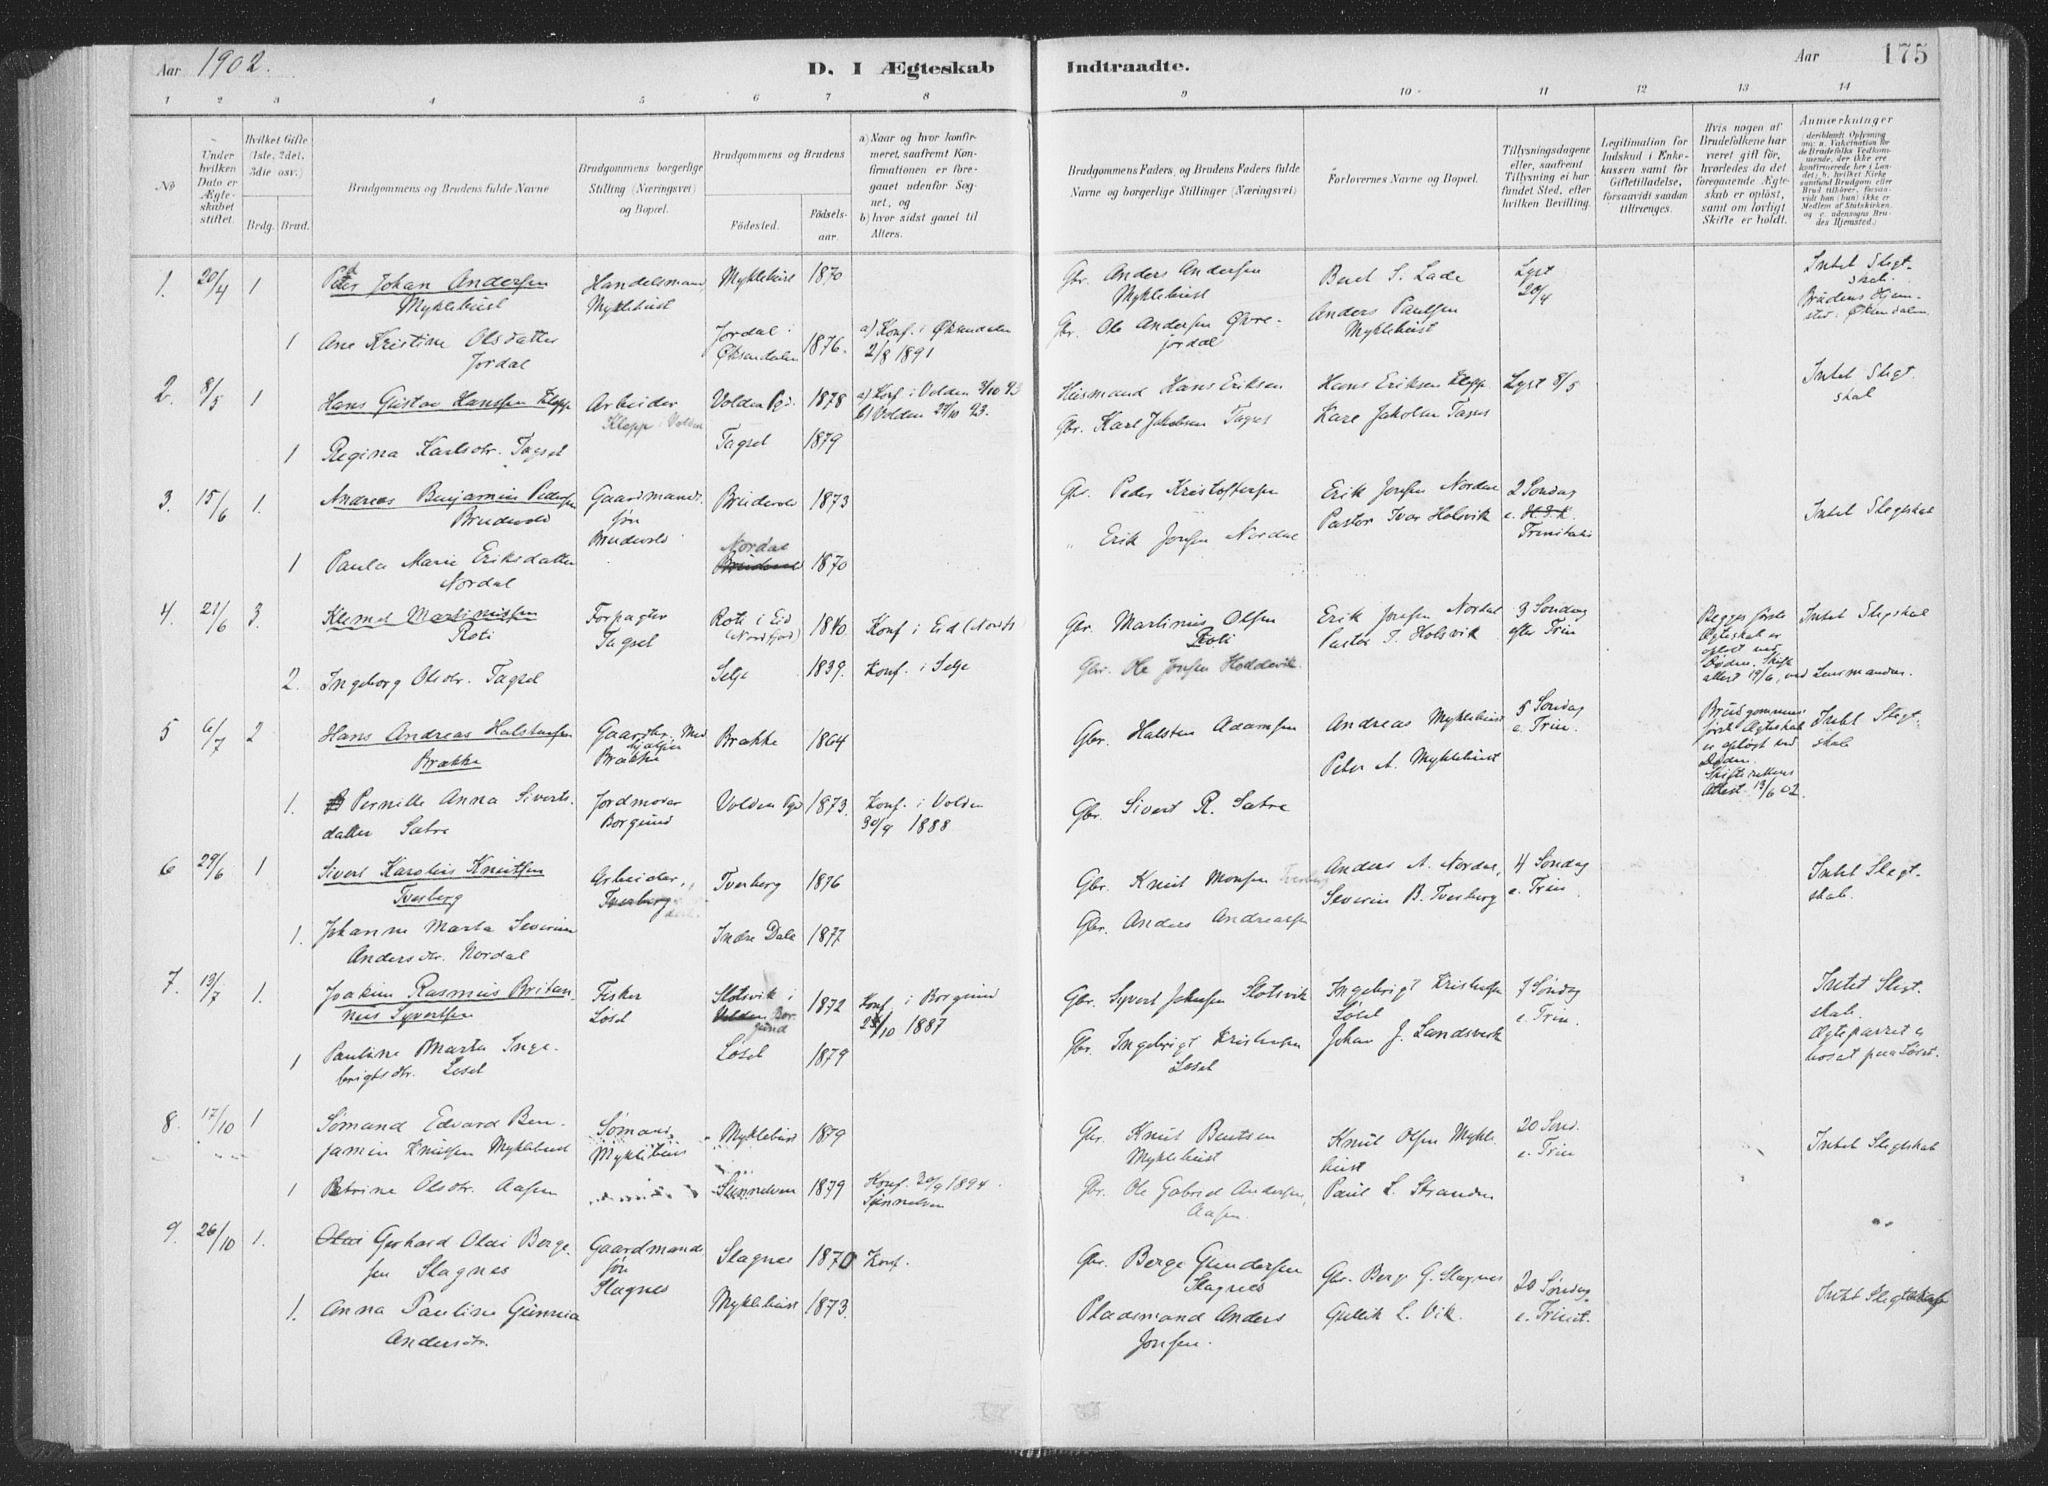 Aar 1902.
D. I Ægteskab
Indtraadte.
Aar
175
1 2 3 4 5 6 7 8 9 10 11 12 13 14
No
Under hvilken Dato er Ægteskabet stiftet.
Hvilket Gifte (1ste, 2det, 3die osv.)
Brdg. Brud.
Brudgommens og Brudens fulde Navne
Brudgommens borgerlige Stilling (Næringsvei) og Bopæl.
Brudgommens og Brudens
Fødested.
Fødselsaar.
a) Naar og hvor konfirmeret, saafremt Konfirmationen er foregaaet udenfor Sognet, og
b) hvor sidst gaaet til Alters.
Brudgommens Faders, og Brudens Faders fulde Navne og borgerlige Stillinger (Næringsvei)
Forlovernes Navne og Bopæl.
Tillysningsdagene eller, saafremt Tillysning ei har fundet Sted, efter hvilken Bevilling.
Legitimation for Indskud i Enkekassen samt for Giftetilladelse, forsaavidt saadan tiltrænges.
Hvis nogen af Brudefolkene har været gift før, hvorledes da det foregaaende Ægteskab er opløst, samt om lovligt Skifte er holdt.
Anmærkninger
1. 20/4 1
Peter Johan Andersen
Myklebust
Handelsmand
Myklebust
Myklebust 1870
Gbr. Anders Andersen
Myklebust
Bert S. Lade
Anders Paulsen
Myklebust
Lyst
20/4
Intet Slegtskab
Brudens Hjemsted: Øksendalen
1 Ane Kristine Olsdatter
Jordal
Jordal i
Øksendalen 1876.
a) Konf. i Øksendalen
2/8 1891
Gbr. Ole Andersen Øvrejordal
2. 8/5 1
Hans Gustav Hansen Klepp
Arbeider
Klepp i Volden
Volden Pgd. 1878
a) Konf. i Volden
b) Volden
Husmand Hans Eriksen
Hans Eriksen Klepp
Lyst 8/5
Intet Slegtskab
1 Regina Karlsdtr. Tagset
Tagset 1879
Gbr. Karl Jakobsen Tagset
Karl Jakobsen Tagset
3. 15/6 1.
Andreas Benjamin Pedersen
Brudevold
Gaardmands
søn
Brudevold
Brudevold 1873
Gbr. Peder Kristoffersen
Erik Jonsen Nordal
2 Søndag
e. H.3.K.
Trinitatis
Intet Slegtskab
1 Paula Marie Eriksdatter
Nordal
Nordal
Brudevold 1870
" Erik Jonsen Nordal
Pastor Ivar Holsvik
4. 21/6 3.
Klemet Martinussen
Roti
Forpagter
Tagset
Roti i Eid
(Nordfjord) 1840
Konf. i Eid (Nordf.)
Gbr. Martinus Olsen
Roti
Erik Jonsen Nordal
Pastor I. Holsvik
3 Søndag
efter Trin
Begges første
Ægteskab er
opløst ved
Døden. Skifteattest 19/6, ved Lensmanden.
Intet Slegtskab
2. Ingeborg Olsdtr. Tagset
Selje 1839.
Konf. i Selje
Gbr. Ole Jonsen Hoddevik
5 6/7 2
Hans Andreas Halstensen
Brække
Gaardbr. Medhjælper
Brække
Brække 1864
Gbr. Halsten Adamsen
Andreas Myklebust
Peter A. Myklebust
5 Søndag
e. Trin.
Brudgommens
første Ægteskab
er opløst ved
Døden.
Skifterettens
Attest 13/6 02.
Intet Slegtskab
1. Pernille Anna Sivertsdatter Sætre
Jordmoder
Borgund
Volden Pgd 1873.
Konf. i Volden
30/9 1888
Gbr. Sivert R. Sætre
6 29/6 1
Sivert Karolius Knutsen
Tverberg
Arbeider,
Tverberg
Tverberg 1876
Gbr. Knut Monsen Tverberg
Anders A. Nordal,
Severin B. Tverberg
4 Søndag
e. Trin.
Intet Slegtskab.
1. Johanne Marta Severine
Andersdtr. Nordal
Indre Dale 1877
Gbr. Anders Andreassen
7. 13/7 1.
Joakim Rasmus Britannus Syvertsen
Fisker
Løset
Slotsvik i
Volden Borgund 1872
Konf. i Borgund
/10 1887
Gbr. Syvert Johnsen Slotsvik
Ingebrigt Kristensen
Løset
Johan J. Landsverk
7 Søndag
e. Trin.
Intet Slegtskab.
Ægteparret er
bosat paa Løset.
1 Pauline Marta Ingebrigtsdtr. Løset
Løset 1879
Gbr. Ingebrigt Kristensen
Løset
8. 17/10 1
Sømand Edvard Benjamin Knutsen Myklebust
Sømand
Myklebust
Myklebust 1879
Gbr. Knut Bentsen
Myklebust
Knut Olsen Myklebust
Paul L. Stranden
20 Sønd.
e. Trin
Intet Slegtskab
1 Petrine Olsdtr. Aasen
Sunnelven 1879
Konf. 20/9 1894
Sunnelven
Gbr. Ole Gabriel Andersen,
Aasen.
9. 26/10 1.
Olai Gerhard Olai Bergesen Slagnes
Gaardmands
søn
Slagnes
Slagnes 1870
Konf.
Gbr. Berge Gundersen
Slagnes
Gbr. Berge G. Slagnes
Gullik L. Vik.
20 Søndag
e. Trinit.
Intet Slegtskab
1. Anna Pauline Gunnia
Andersdtr.
Myklebust 1873.
Pladsmand Anders
Jonsen.